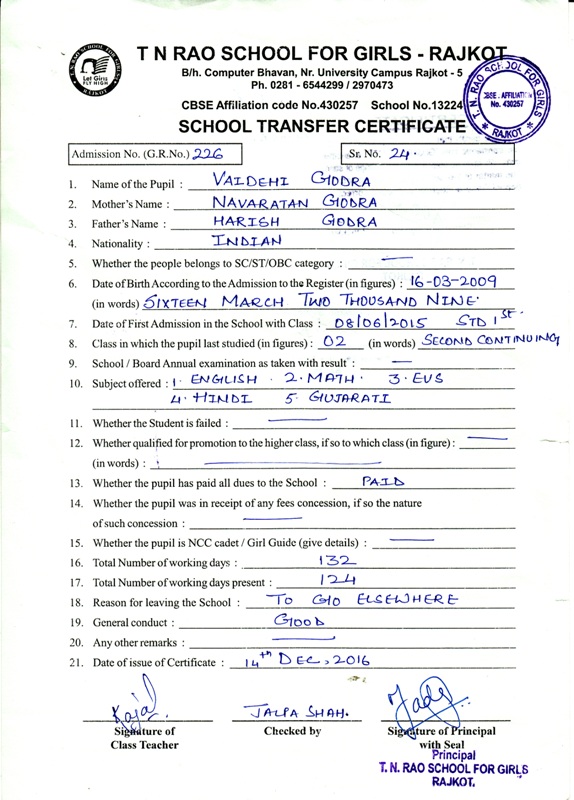 T N RAO SCHOOL FOR GIRLS - RAJKOT
B/h. Computer Bhavan, Nr. University Campus Rajkot - 5
Ph. 0281 - 6544299 / 2970473
CBSE Affiliation code No.430257 School No.13224
SCHOOL TRANSFER CERTIFICATE
T. N. RAO SCHOOL FOR GIRLS
Let Girls
FLY HIGH
RAJKOT
T. N. RAO SCHOOL FOR GIRLS
CBSE - AFFILIATION
No. 430257
RAJKOT
Admission No. (G.R.No.) 226 Sr. No. 24.
1. Name of the Pupil : VAIDEHI GODRA
2. Mother's Name : NAVARATAN GODRA
3. Father's Name : HARISH GODRA
4. Nationality : INDIAN
5. Whether the people belongs to SC/ST/OBC category : —
6. Date of Birth According to the Admission to the Register (in figures) : 16-03-2009
(in words) SIXTEEN MARCH TWO THOUSAND NINE.
7. Date of First Admission in the School with Class : 08/06/2015 STD 1st.
8. Class in which the pupil last studied (in figures) : 02 (in words) SECOND CONTINUING
9. School / Board Annual examination as taken with result : —
10. Subject offered : 1. ENGLISH . 2. MATH . 3. EVS
4. HINDI 5. GUJARATI
11. Whether the Student is failed : —
12. Whether qualified for promotion to the higher class, if so to which class (in figure) : —
(in words) : —
13. Whether the pupil has paid all dues to the School : PAID
14. Whether the pupil was in receipt of any fees concession, if so the nature
of such concession : —
15. Whether the pupil is NCC cadet / Girl Guide (give details) : —
16. Total Number of working days : 132
17. Total Number of working days present : 124
18. Reason for leaving the School : TO GO ELSEWHERE
19. General conduct : GOOD
20. Any other remarks : —
21. Date of issue of Certificate : 14th DEC, 2016
Kajal JALPA SHAH.
Signature of Checked by Signature of Principal
Class Teacher with Seal
Principal
T. N. RAO SCHOOL FOR GIRLS
RAJKOT.